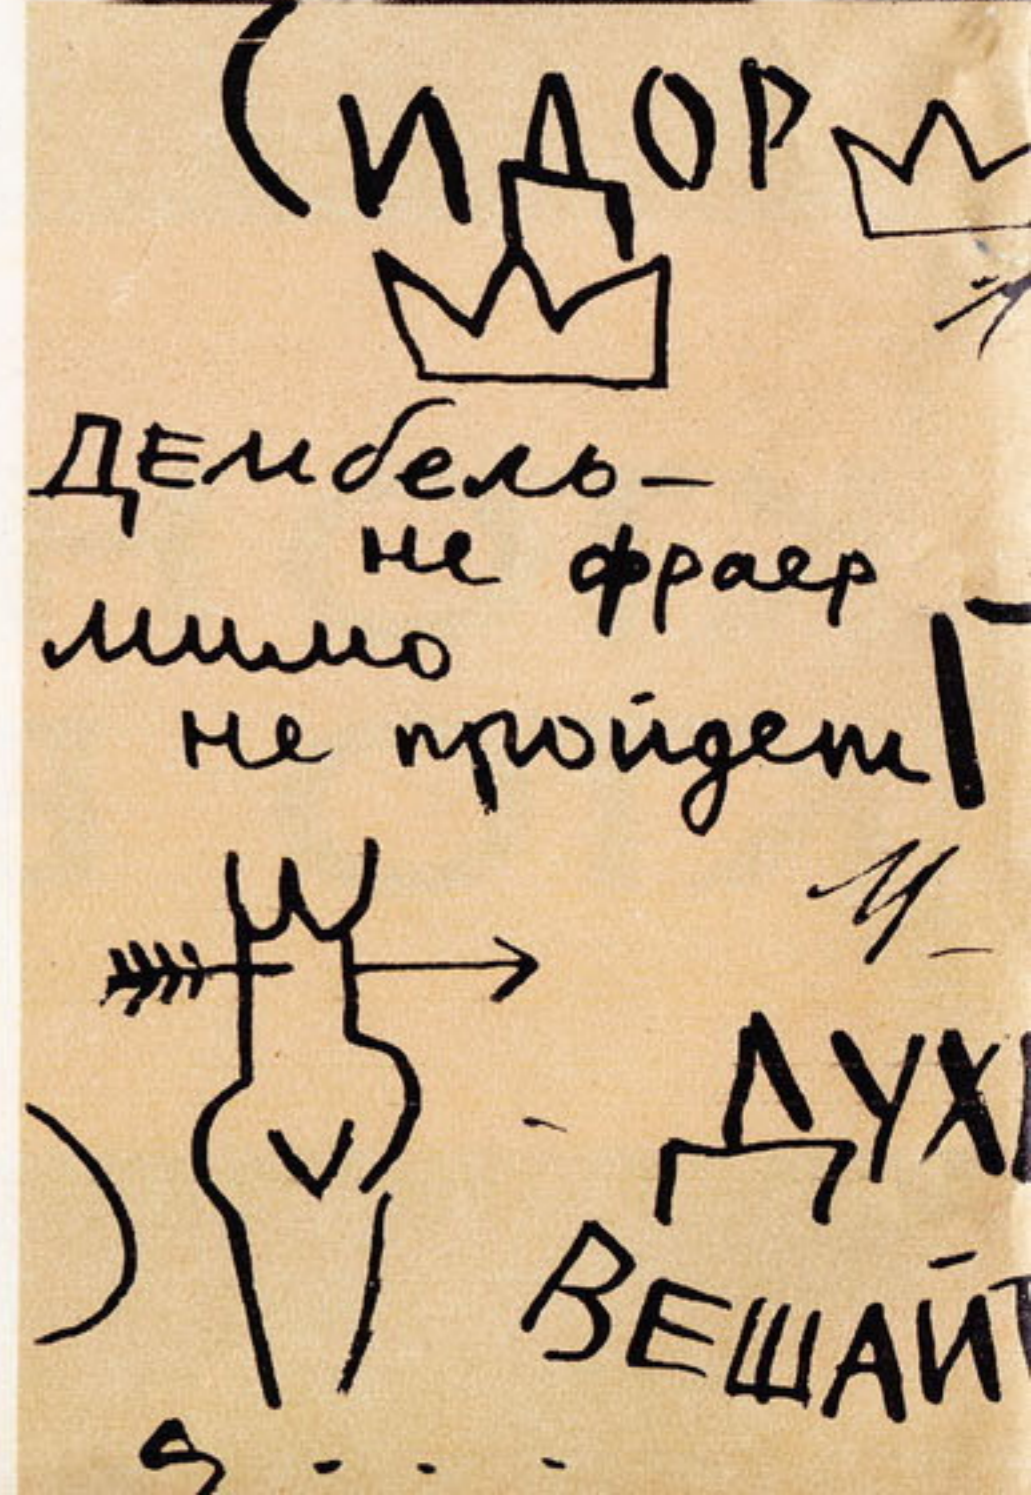 СИДОР
Дембель —
не фраер
мимо
не пройдет
ДУХ
ВЕШАЙТ